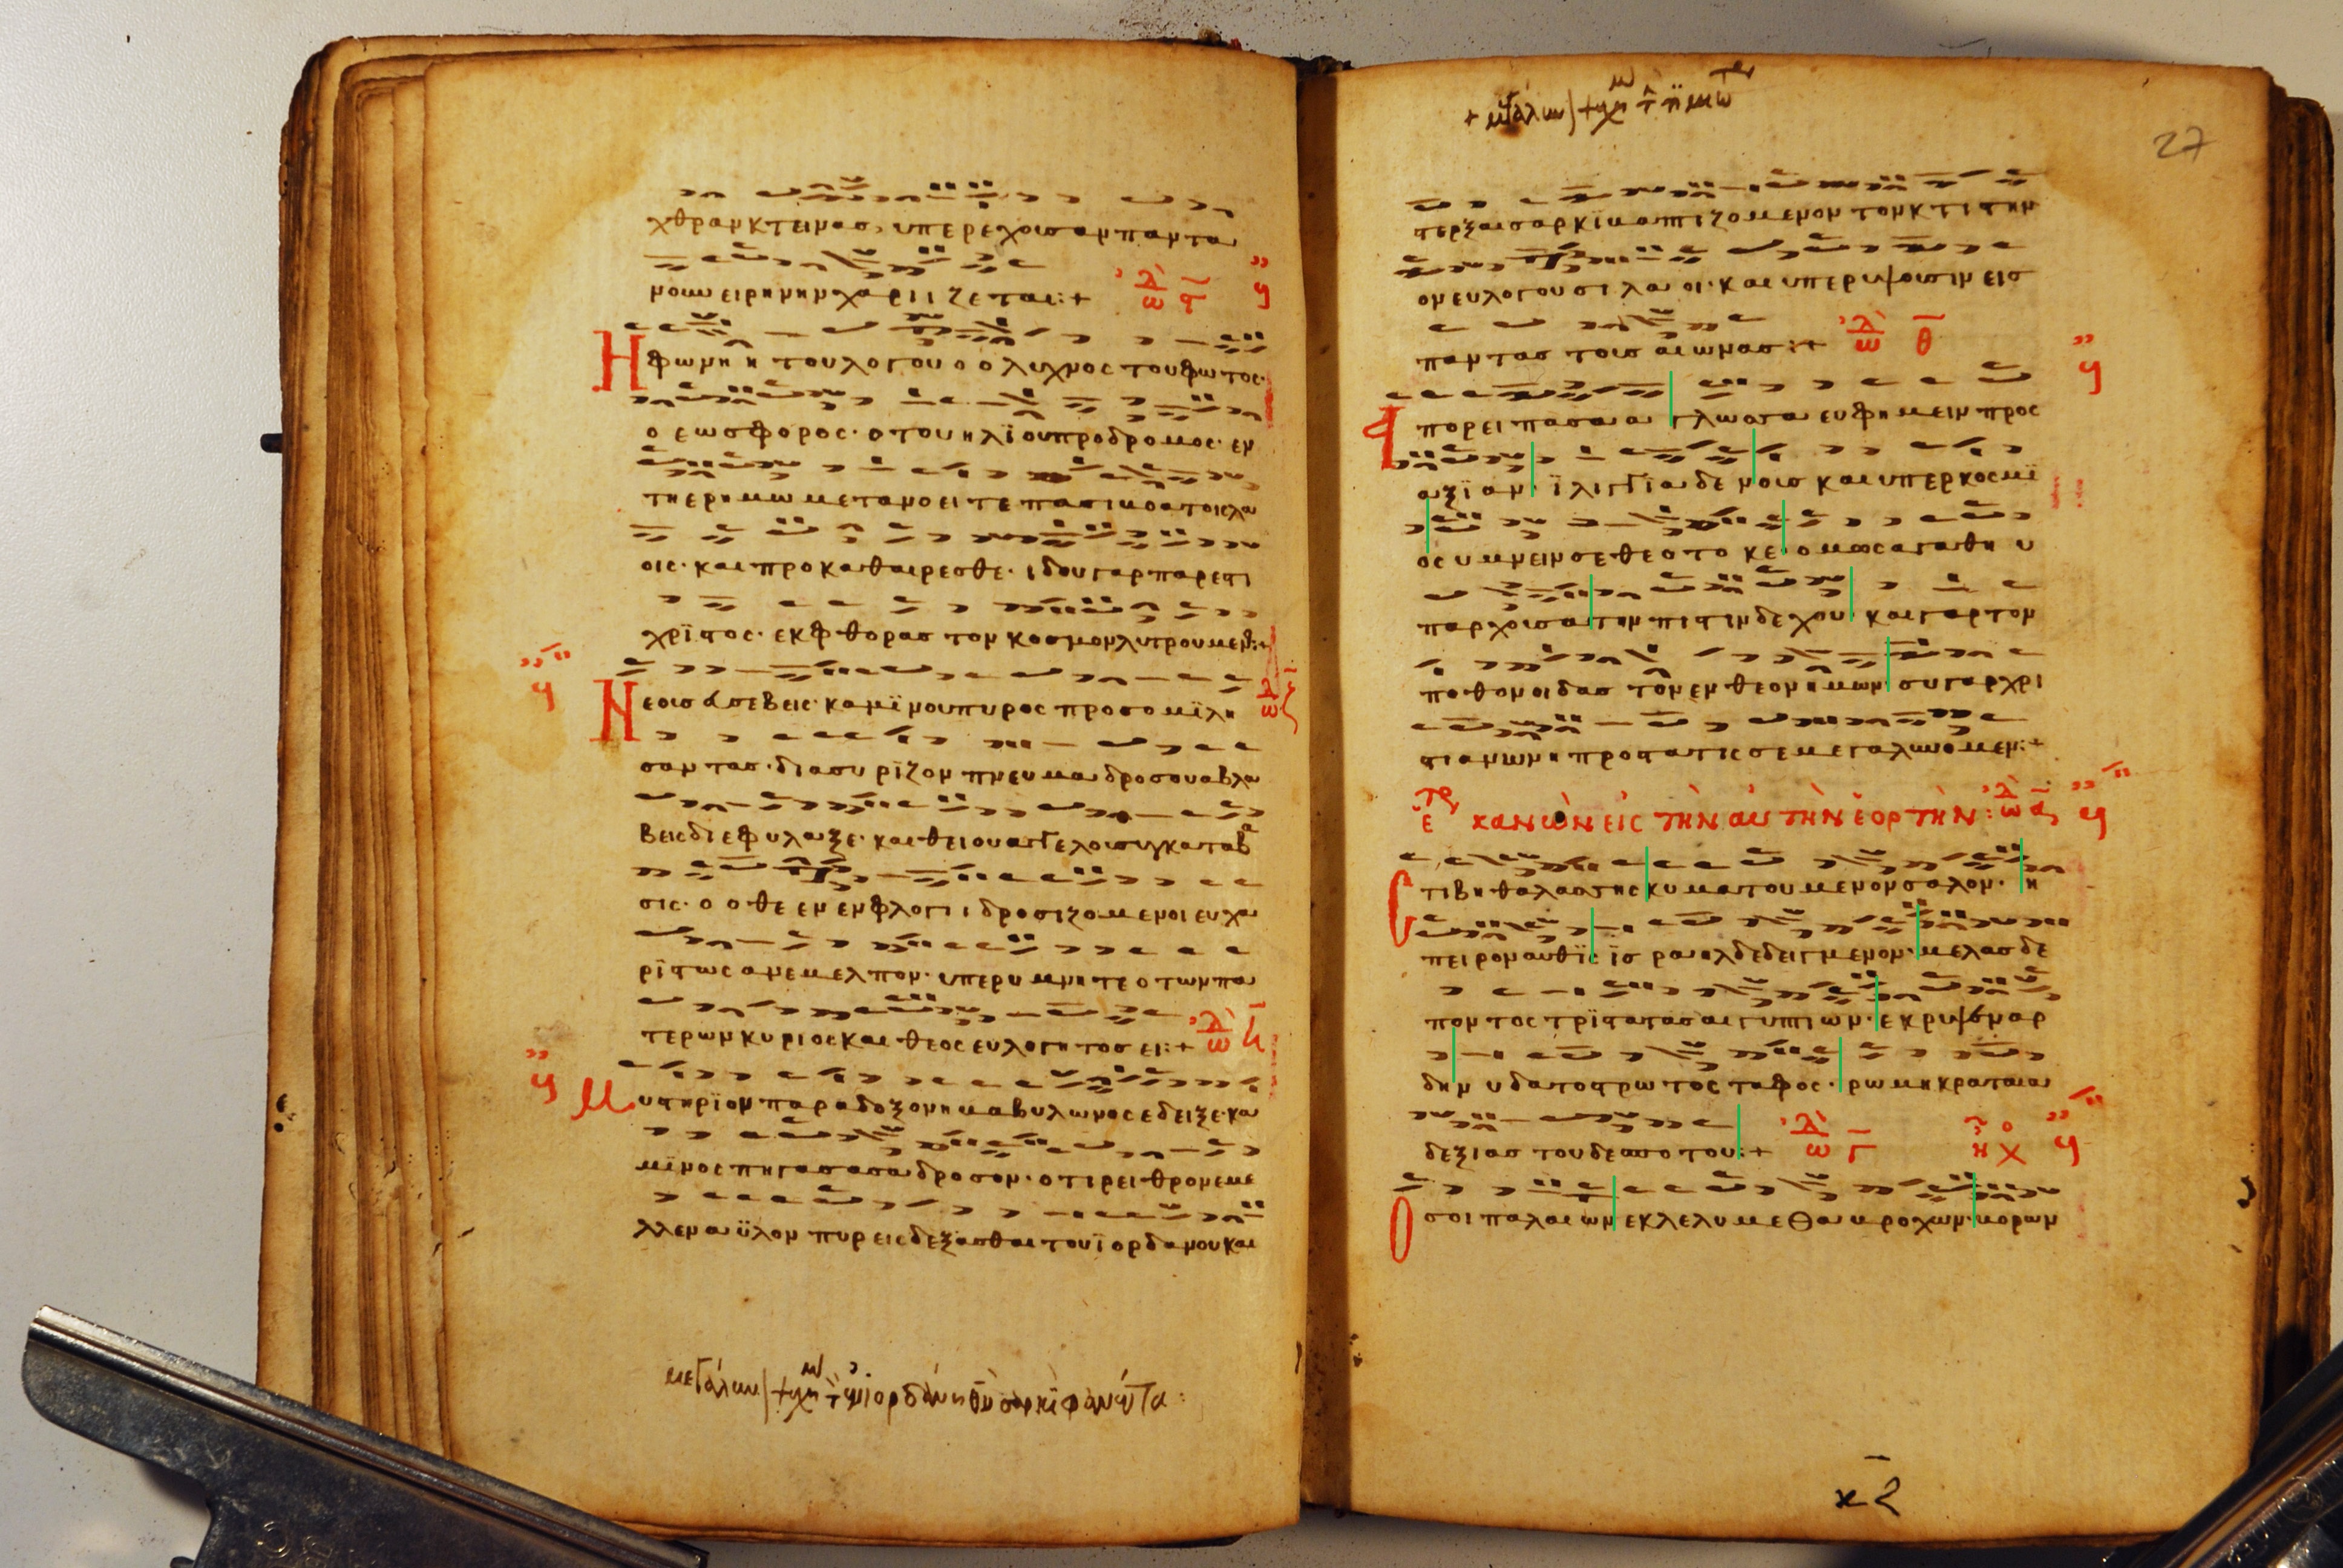 χθραν κτεινας, υπερεχουσαν παντα
νουν ειρηνην χαριιζεται:+ ᾠδὴ ϛ
Η φωνη η του λογου ο ο λυχνος του φωτος·
ο εωσφορος· ο του ηλϊου προδρομος· εν
τη ερημω μετανοειτε πασι βοα τοις λα
οις· και προκαθαιρεσθε· ιδου γαρ παρεστι
χρϊστος· εκ φθορας τον κοσμον λυτρουμεν:+
Νεους ευσεβεις· καμϊνου πυρος προσομϊλη ᾠδὴ ζ
σαντας· διασυρϊζον πνευμα δροσου αβλα
βεις διεφυλαξε· και θειου αγγελου συγκαταβα
σις· ο οθεν εν φλογι ι δροσιζομενοι ευχα
ρϊστως ανεμελπον· υπερυμνητε ο των πα
τερων κυριος και θεος ευλογητος ει:+ ᾠδὴ η
Μυστηρϊον παραδοξον η βαβυλωνος εδειξε κα
μϊνος πηγασασα δροσον· οτι ρειθροις εμε
λλεν αϋλον πυρ εισδεξασθαι του ϊορδανου και
27
στερξαι σαρκϊ βαπτιζομενον τον κτιστην
ον ευλογουσι λαοι· και υπερυψουσιν εις
παντας τους αιωνας:+ ᾠδὴ θ
Απορει πασα α γλωσσα ευφημειν προς
αξϊαν· ϊλιγγια δε νους και υπερκοσμϊ
ος υμνειν σε θεοτοκε· ομως αγαθη υ
παρχουσα την πιστιν δεχου· και γαρ τον
ποθον οιδας τον ενθεον ημων συ γαρ χρι
στιανων η προστατις σε μεγαλυνομεν:+
ετερ κανὼν εἰς τὴν αὐτὴν ἑορτὴν: ᾠδὴ α
Στιβη θαλασσης κυματουμενον σαλον· η
πειρον αυθϊς ϊσραηλ δεδειγμενον· μελας δε
ποντος τρϊστατας αιγυπτιων· εκρυψεν αρ
δην υδατοστρωτος ταφος· ρωμη κραταια
δεξιας του δεσποτου:+ ᾠδὴ γ
Οσοι παλαιων εκλελυμεθα βροχων· βορων
κζ